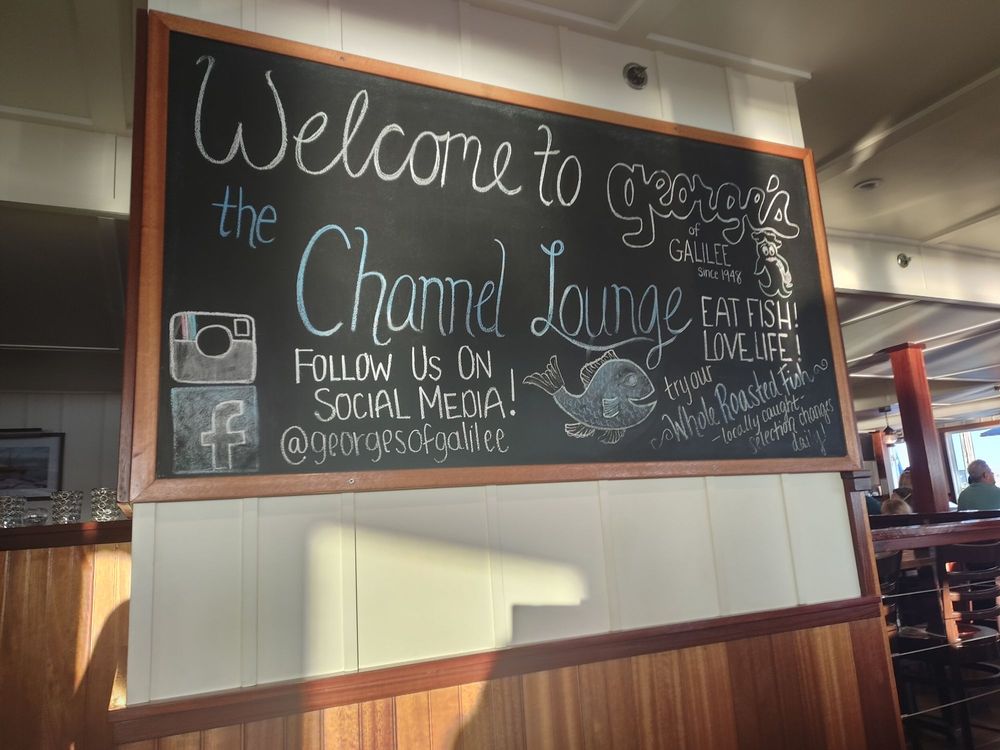 Welcome to
the
Channel Lounge
george's
of
GALILEE
since 1948
EAT FISH!
LOVE LIFE!
try our
Whole Roasted Fish
- locally caught -
selection changes
daily!
FOLLOW US ON
SOCIAL MEDIA!
@georgesofgalilee
f